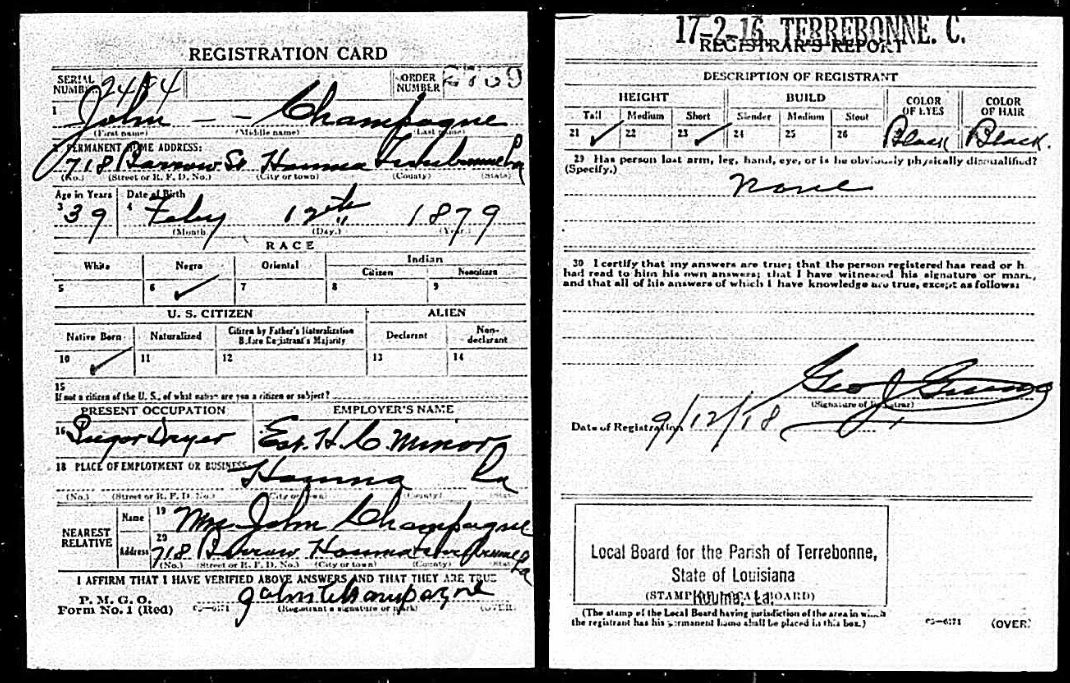 REGISTRATION CARD
SERIAL NUMBER 2454 ORDER NUMBER 2739
1 John - - Champagne
(First name) (Middle name) (Last name)
2 PERMANENT HOME ADDRESS:
718 Barrow St Houma Terrebonne La
(No.) (Street or R. F. D. No.) (City or town) (County) (State)
Age in Years Date of Birth
3 39 4 Feby 12th 1879
(Month.) (Day.) (Year.)
RACE
White Negro Oriental Indian
Citizen Noncitizen
5 6 ✓ 7 8 9
U. S. CITIZEN ALIEN
Native Born Naturalized Citizen by Father's Naturalization Before Registrant's Majority Declarant Non-declarant
10 ✓ 11 12 13 14
15
If not a citizen of the U. S., of what nation are you a citizen or subject?
PRESENT OCCUPATION EMPLOYER'S NAME
16 Sugar Dryer Est. H. C. Minor
18 PLACE OF EMPLOYMENT OR BUSINESS
Houma La
(No.) (Street or R. F. D. No.) (City or town) (County) (State)
NEAREST RELATIVE Name 19 Mrs John Champagne
Address 20 718 Barrow Houma Terrebonne La
(No.) (Street or R. F. D. No.) (City or town) (County) (State)
I AFFIRM THAT I HAVE VERIFIED ABOVE ANSWERS AND THAT THEY ARE TRUE
P. M. G. O.
Form No. 1 (Red) 03—6171 John Champagne
(Registrant's signature or mark) (OVER)
17-2-16 TERREBONNE. C.
REGISTRAR'S REPORT
DESCRIPTION OF REGISTRANT
HEIGHT BUILD COLOR OF EYES COLOR OF HAIR
Tall Medium Short Slender Medium Stout
21 ✓ 22 23 ✓ 24 25 26 Black Black.
29 Has person lost arm, leg, hand, eye, or is he obviously physically disqualified?
(Specify.)
None
30 I certify that my answers are true; that the person registered has read or h
had read to him his own answers; that I have witnessed his signature or mark,
and that all of his answers of which I have knowledge are true, except as follows:
Geo J.
(Signature of Registrar)
Date of Registration 9/12/18
Local Board for the Parish of Terrebonne,
State of Louisiana
Houma, La.
(STAMP OF LOCAL BOARD)
(The stamp of the Local Board having jurisdiction of the area in which
the registrant has his permanent home shall be placed in this box.)
03—6171 (OVER)